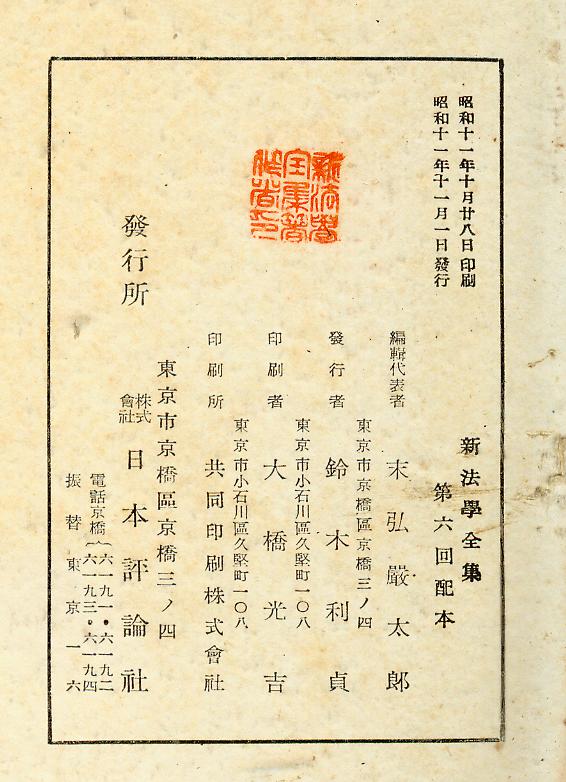 昭和十一年十月廿八日印刷
昭和十一年十一月一日發行
新法學全集
第六回配本
編輯代表者 末弘嚴太郎
東京市京橋區京橋三ノ四
發行者 鈴木利貞
東京市小石川區久堅町一〇八
印刷者 大橋光吉
東京市小石川區久堅町一〇八
印刷所 共同印刷株式會社
東京市京橋區京橋三ノ四
發行所 株式會社 日本評論社
電話京橋 六一九一・六一九二
六一九三・六一九四
振替東京一六